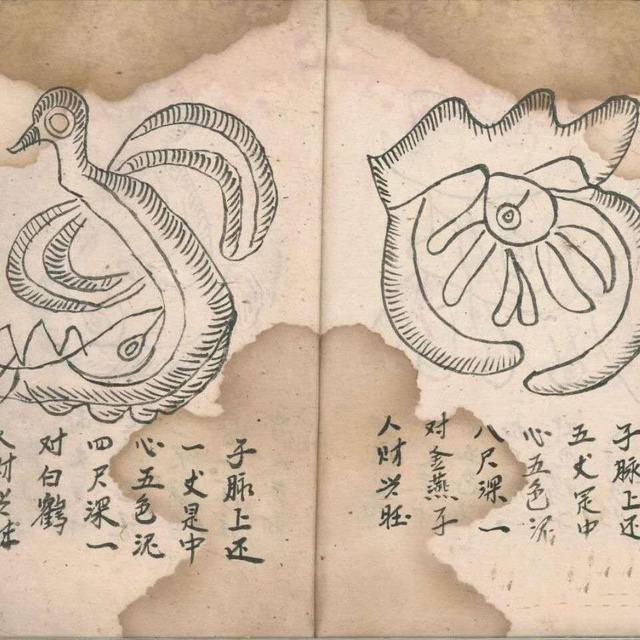 子脉上还
五丈是中
心五色泥
八尺深一
对金燕子
人财兴旺
子脉上还
一丈是中
心五色泥
四尺深一
对白鹤
人财兴